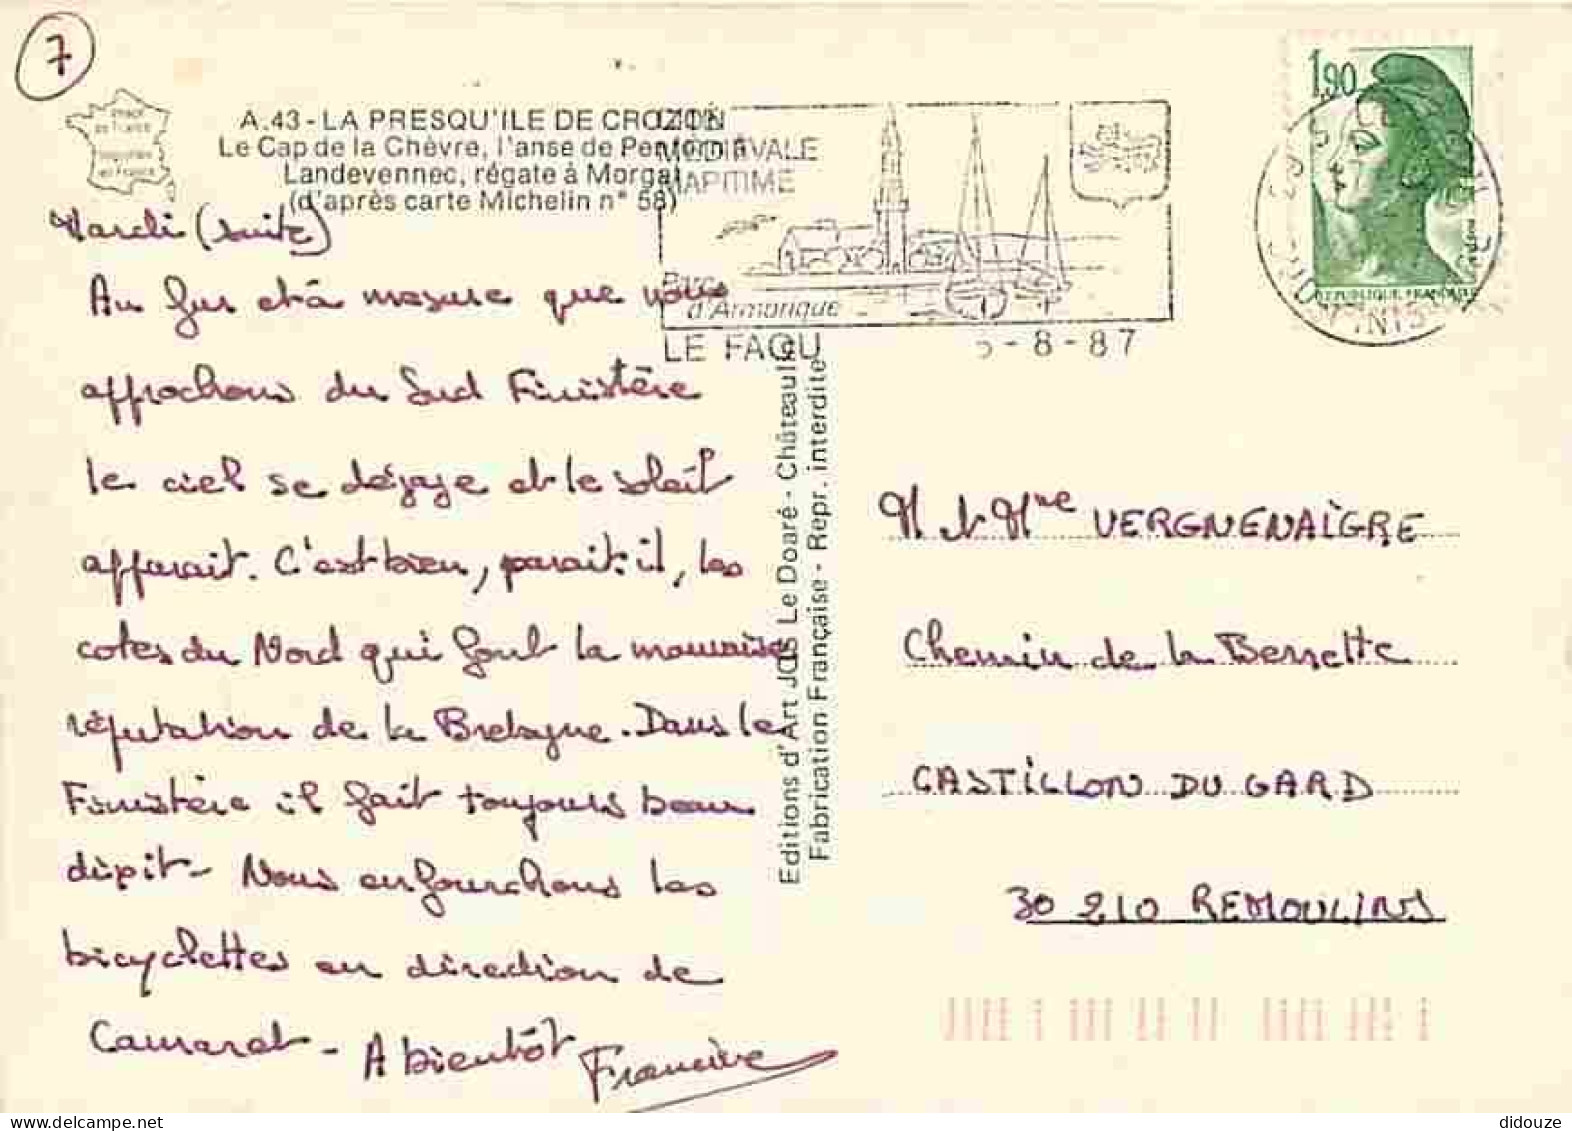 7
A.43 - LA PRESQU'ILE DE CROZON
Le Cap de la Chèvre, l'anse de
Landevennec, régate à Morgat
(d'après carte Michelin n° 58)
MEDIEVALE
MARITIME
Parc
d'Armorique
LE FAOU
5-8-87
1,90
REPUBLIQUE FRANÇAISE
Mardi (suite)
Au fur et à mesure que nous
approchons du Sud Finistère
le ciel se dégage et le soleil
apparait. C'est bien, parait-il, les
cotes du Nord qui font la mauvaise
réputation de la Bretagne. Dans le
Finistère il fait toujours beau
dixit - Nous enfourchons les
bicyclettes en direction de
Camaret - A bientôt
Francine
Editions d'Art JOS Le Doaré - Châteaulin
Fabrication Française - Repr. interdite
M et Mme VERGNENAIGRE
Chemin de la Berrette
CASTILLON DU GARD
30 210 REMOULINS
didouze